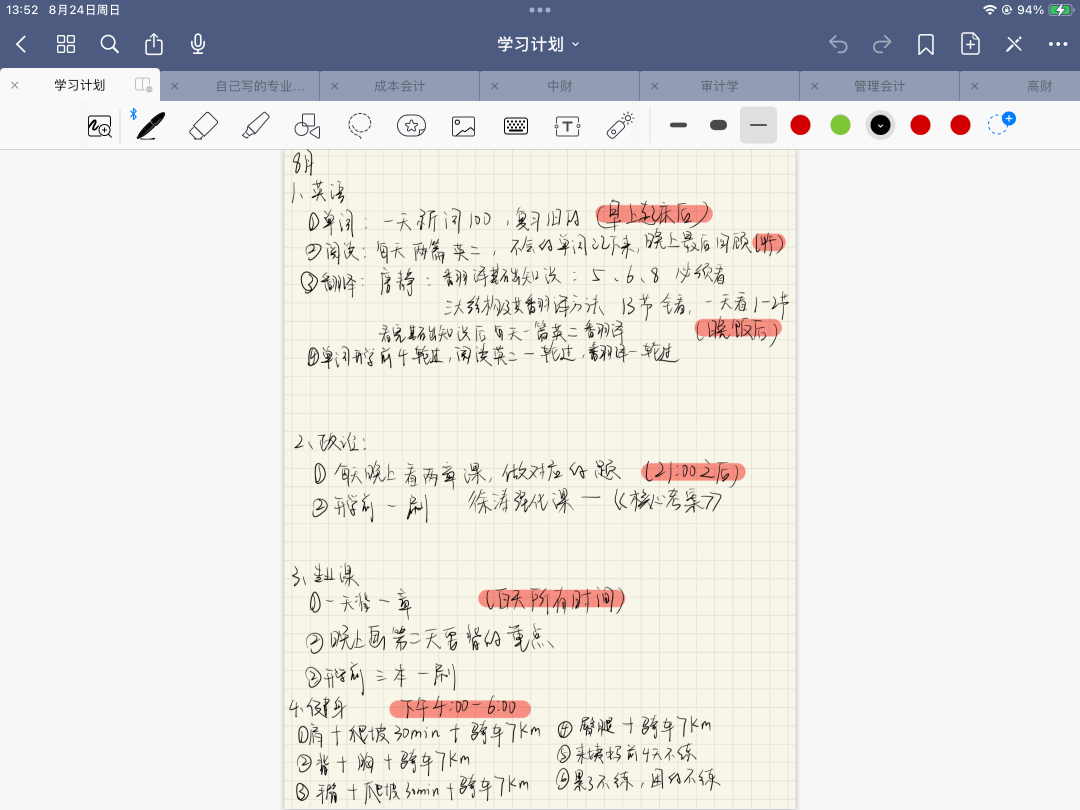 13:52 8月24日周日
94%
学习计划
学习计划 自己写的专业... 成本会计 中财 审计学 管理会计 高财
8月
1、英语
①单词：一天新词100，复习旧的（早上起床后）
②阅读：每天两篇英二，不会的单词记下来，晚上最后回顾（听）
③翻译：唐静：翻译基础知识：5、6、8 必须看
三大结构及其翻译方法 13节 全看，一天看1-2节
看完基础知识后每天一篇英二翻译 （晚饭后）
④单词开学前4轮过，阅读英二一轮过，翻译一轮过
2、政治：
①每天晚上看两章课，做对应的题 （21:00之后）
②开学前一刷 徐涛强化课 —《核心考案》
3、专业课
①一天背一章 （白天所有时间）
②晚上画第二天要背的重点
③开学前三本一刷
4、健身 下午4:00-6:00
①肩+爬坡30min+骑车7km
②背+胸+骑车7km
③手臂+爬坡30min+骑车7km
④臀腿+骑车7km
⑤来姨妈前4天不练
⑥累了不练，困的不练